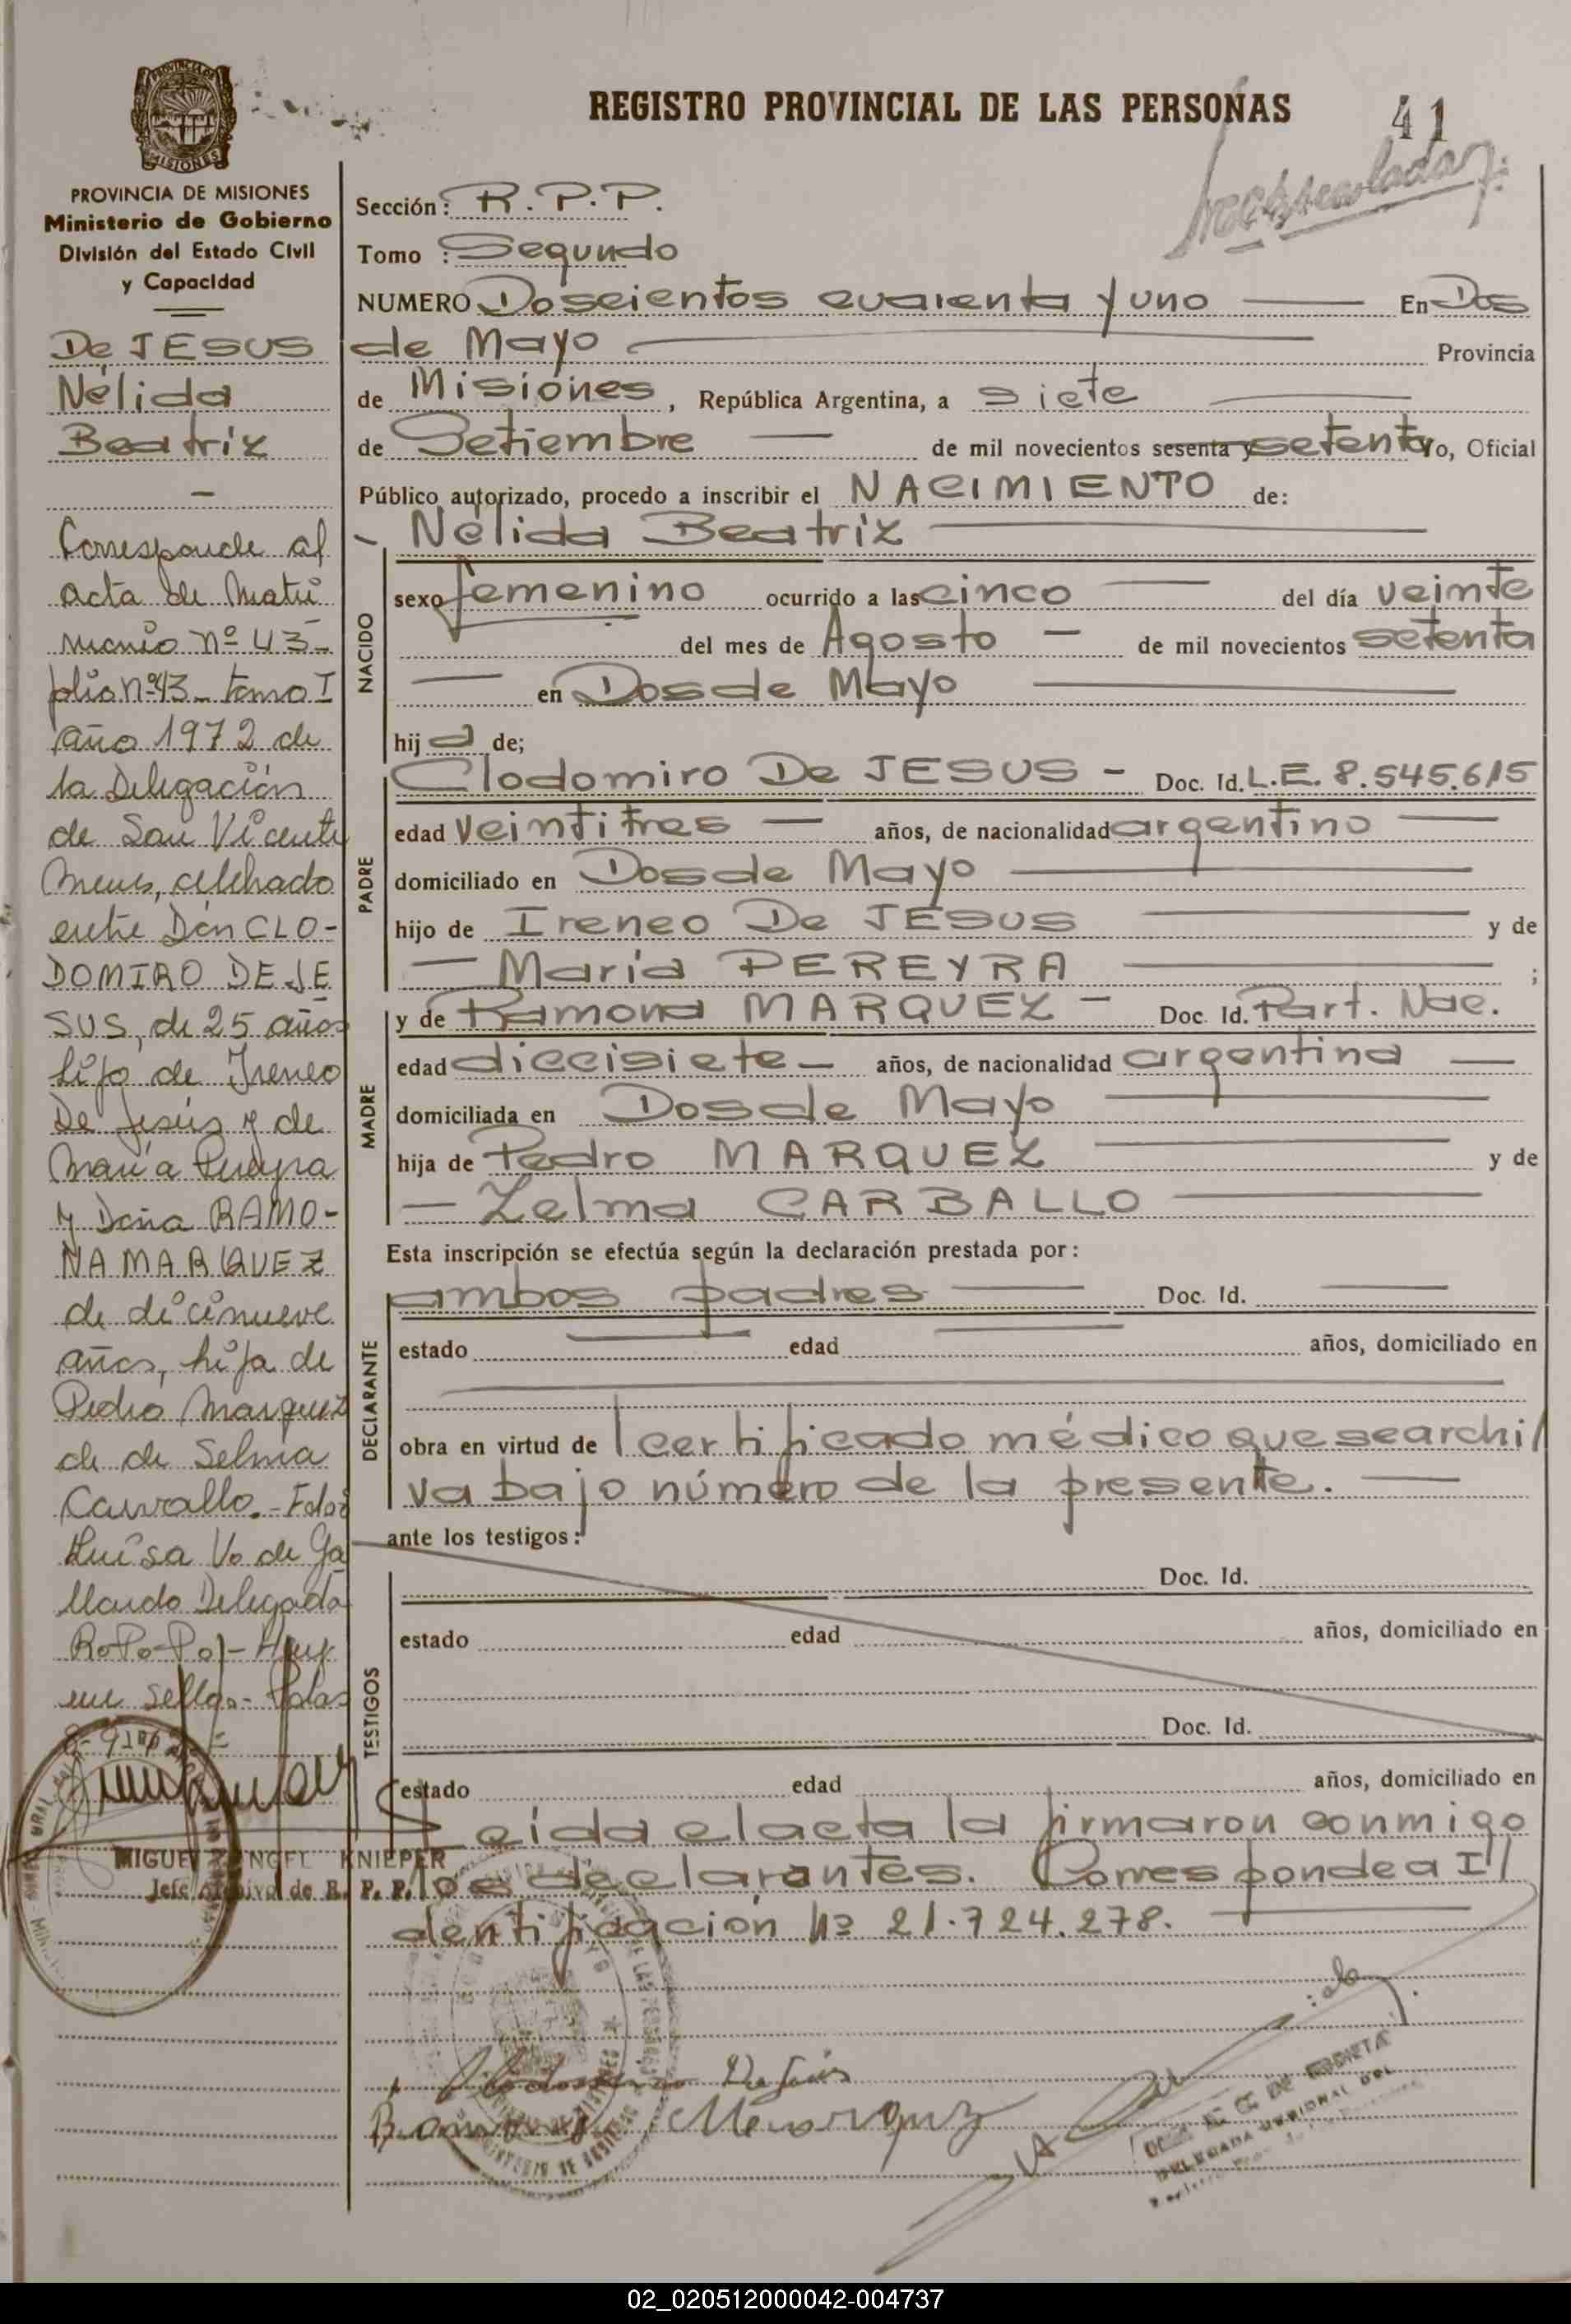 REGISTRO PROVINCIAL DE LAS PERSONAS
41
PROVINCIA DE MISIONES
Ministerio de Gobierno
División del Estado Civil
y Capacidad
De JESUS
Nélida
Beatriz
Corresponde al
acta de Matri
monio Nº 43-
folio Nº 43- tomo I
año 1972 de
la Delegación
de San Vicente
Mnes, celebrado
entre Don CLO-
DOMIRO DE JE
SUS, de 25 años
hijo de Ireneo
De Jesús y de
María Pereyra
y Doña RAMO-
NA MARQUEZ
de diecinueve
años, hija de
Pedro Marquez
de de Selma
Carvallo.- Fdo:
Luisa V. de Ga
llardo Delegada
R.P.P.- Hay
un sello.- Pdas
MIGUEL ANGEL KNIEPER
Jefe Archivo de R. P. P.
Sección: R.P.P.
Tomo : Segundo
NUMERO Doscientos cuarenta y uno En Dos
de Mayo Provincia
de Misiónes, República Argentina, a siete
de Setiembre de mil novecientos sesenta y setenta Yo, Oficial
Público autorizado, procedo a inscribir el NACIMIENTO de:
Nélida Beatriz
NACIDO
sexo femenino ocurrido a las cinco del día veinte
del mes de Agosto de mil novecientos setenta
en Dos de Mayo
hija de;
PADRE
Clodomiro De JESUS - Doc. Id. L.E. 8.545.615
edad veintitres años, de nacionalidad argentino
domiciliado en Dos de Mayo
hijo de Ireneo De JESUS y de
María PEREYRA ;
MADRE
y de Ramona MARQUEZ - Doc. Id. Part. Nac.
edad diecisiete años, de nacionalidad argentina
domiciliada en Dos de Mayo
hija de Pedro MARQUEZ y de
Zelma CARBALLO
Esta inscripción se efectúa según la declaración prestada por:
DECLARANTE
ambos padres Doc. Id.
estado edad años, domiciliado en
obra en virtud de certificado médico que se archi/
va bajo número de la presente.
ante los testigos:
TESTIGOS
Doc. Id.
estado edad años, domiciliado en
Doc. Id.
estado edad años, domiciliado en
Leída el acta la firmaron conmigo
los declarantes. Corresponde a I//
dentificación Nº 21.724.278.
Ramona Marquez
02_020512000042-004737